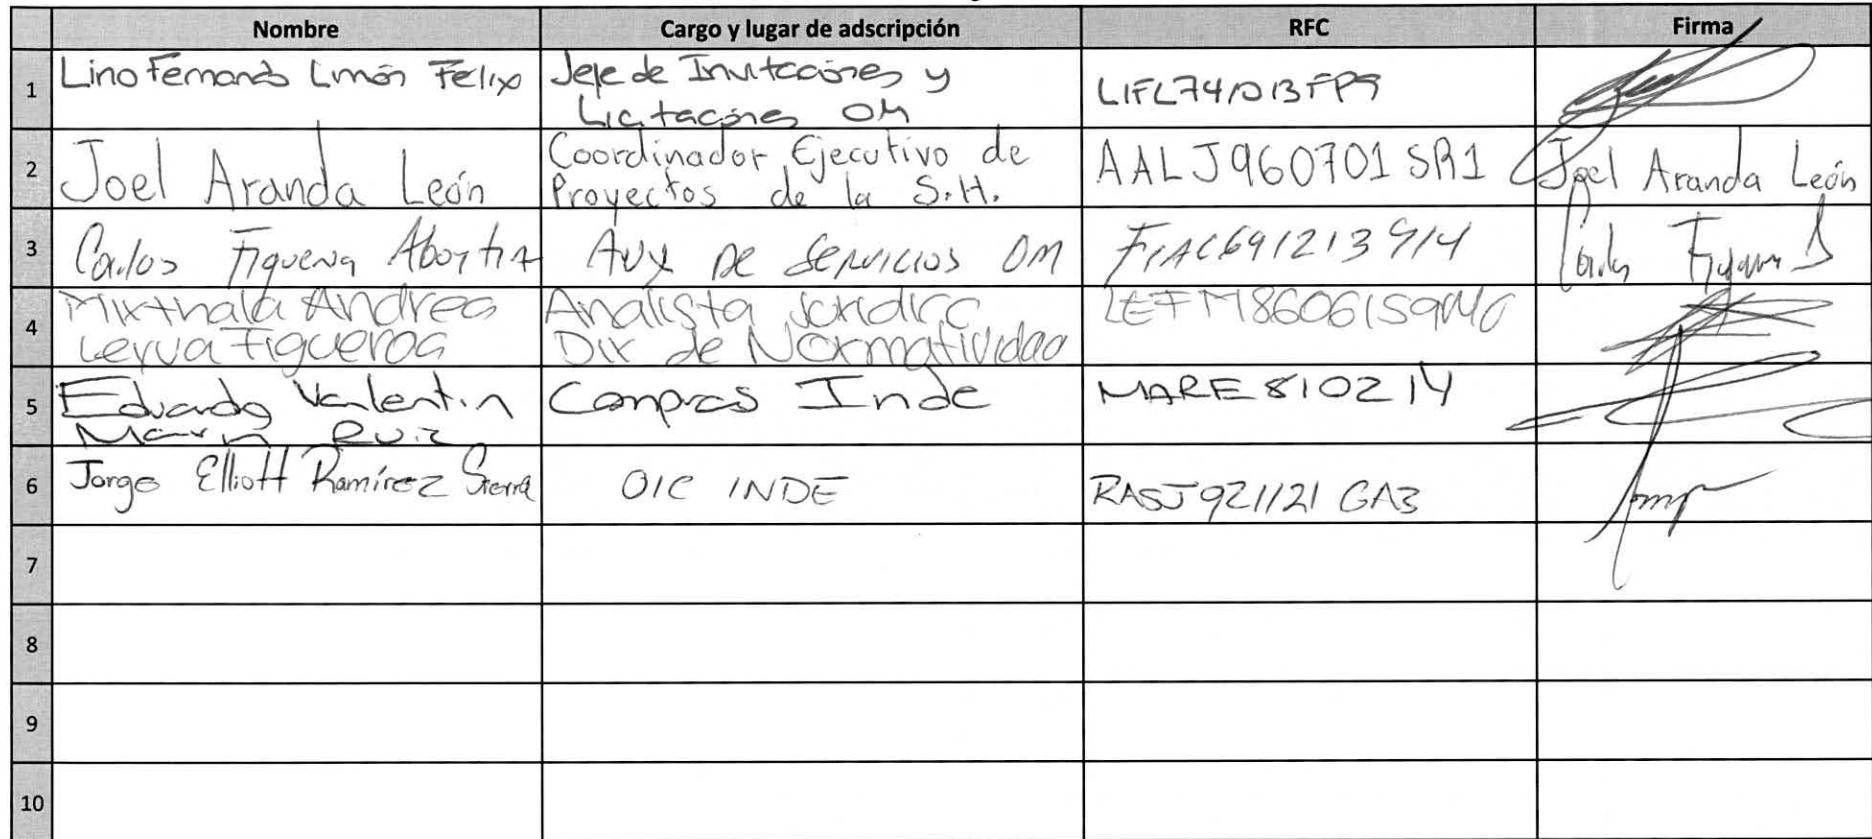 Nombre Cargo y lugar de adscripción RFC Firma
1 Lino Fernando Limón Felix Jefe de Invitaciones y
Licitaciones OM LIFL741013FP9
2 Joel Aranda León Coordinador Ejecutivo de
Proyectos de la S.H. AALJ960701SR1 Joel Aranda León
3 Carlos Figueroa Aux de Servicios OM FIAC691213914 Carlos Figueroa
4 Mixthala Andrea Analista Jurídico
Leyva Figueroa Dir de Normatividad
5 Eduardo Valentin Compras Inde MARE810214
Marin Ruiz
6 Jorge Elliott Ramírez Sierra OIC INDE RASJ921121 GA3
7
8
9
10